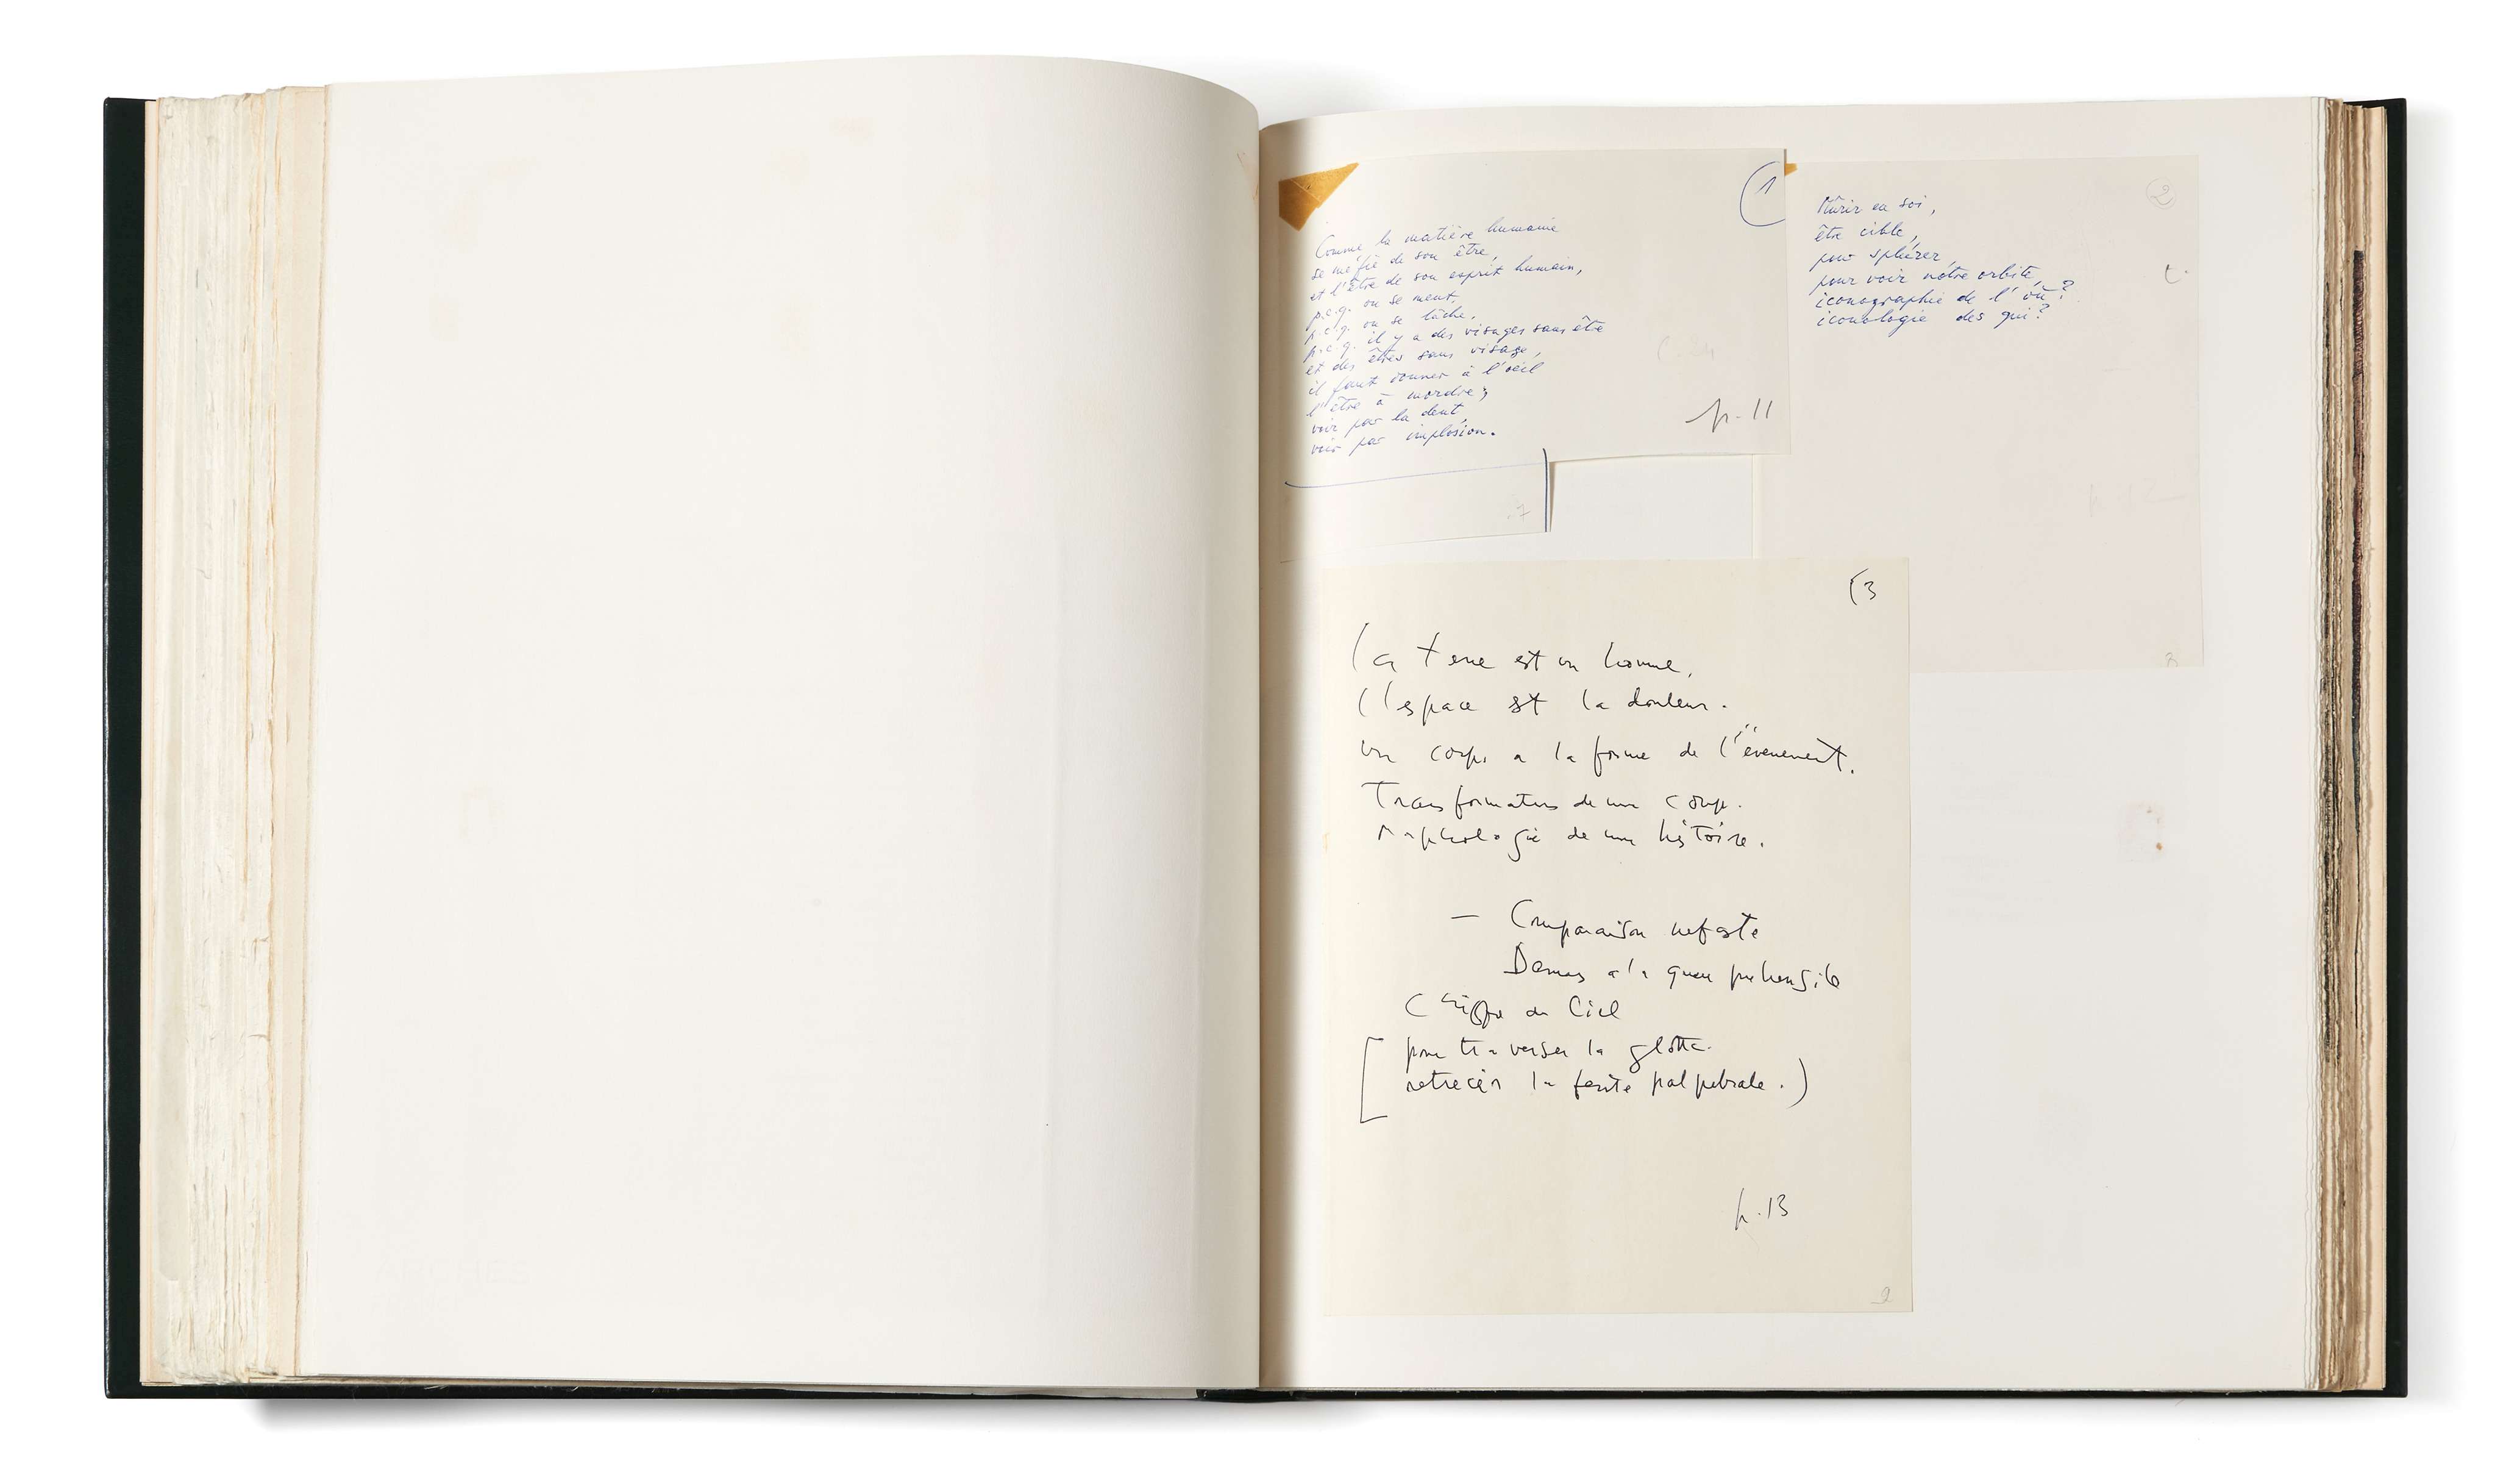 1
Comme la matière humaine
se méfie de son être,
et l'être de son esprit humain,
p.c.q. on se ment,
p.c.q. on se lâche,
p.c.q. il y a des visages sans être
et des êtres sans visage,
il faut donner à l'oeil
l'être à mordre,
voir par la dent,
voir par implosion.
p. 11
2
Mûrir en soi,
être cible,
pour sphérer,
pour voir nôtre orbite,
iconographie de l'où?
iconologie des qui?
p. 12
(3
La terre est un homme,
l'espace est la douleur.
un corps a la forme de l'évenement.
Transformations de une coup.
Morphologie de une histoire.
— Comparaison nefaste
à la queu prehensile
Ciel
pour traverser la glotte
retrecir la fente palpebrale.)
p. 13
2